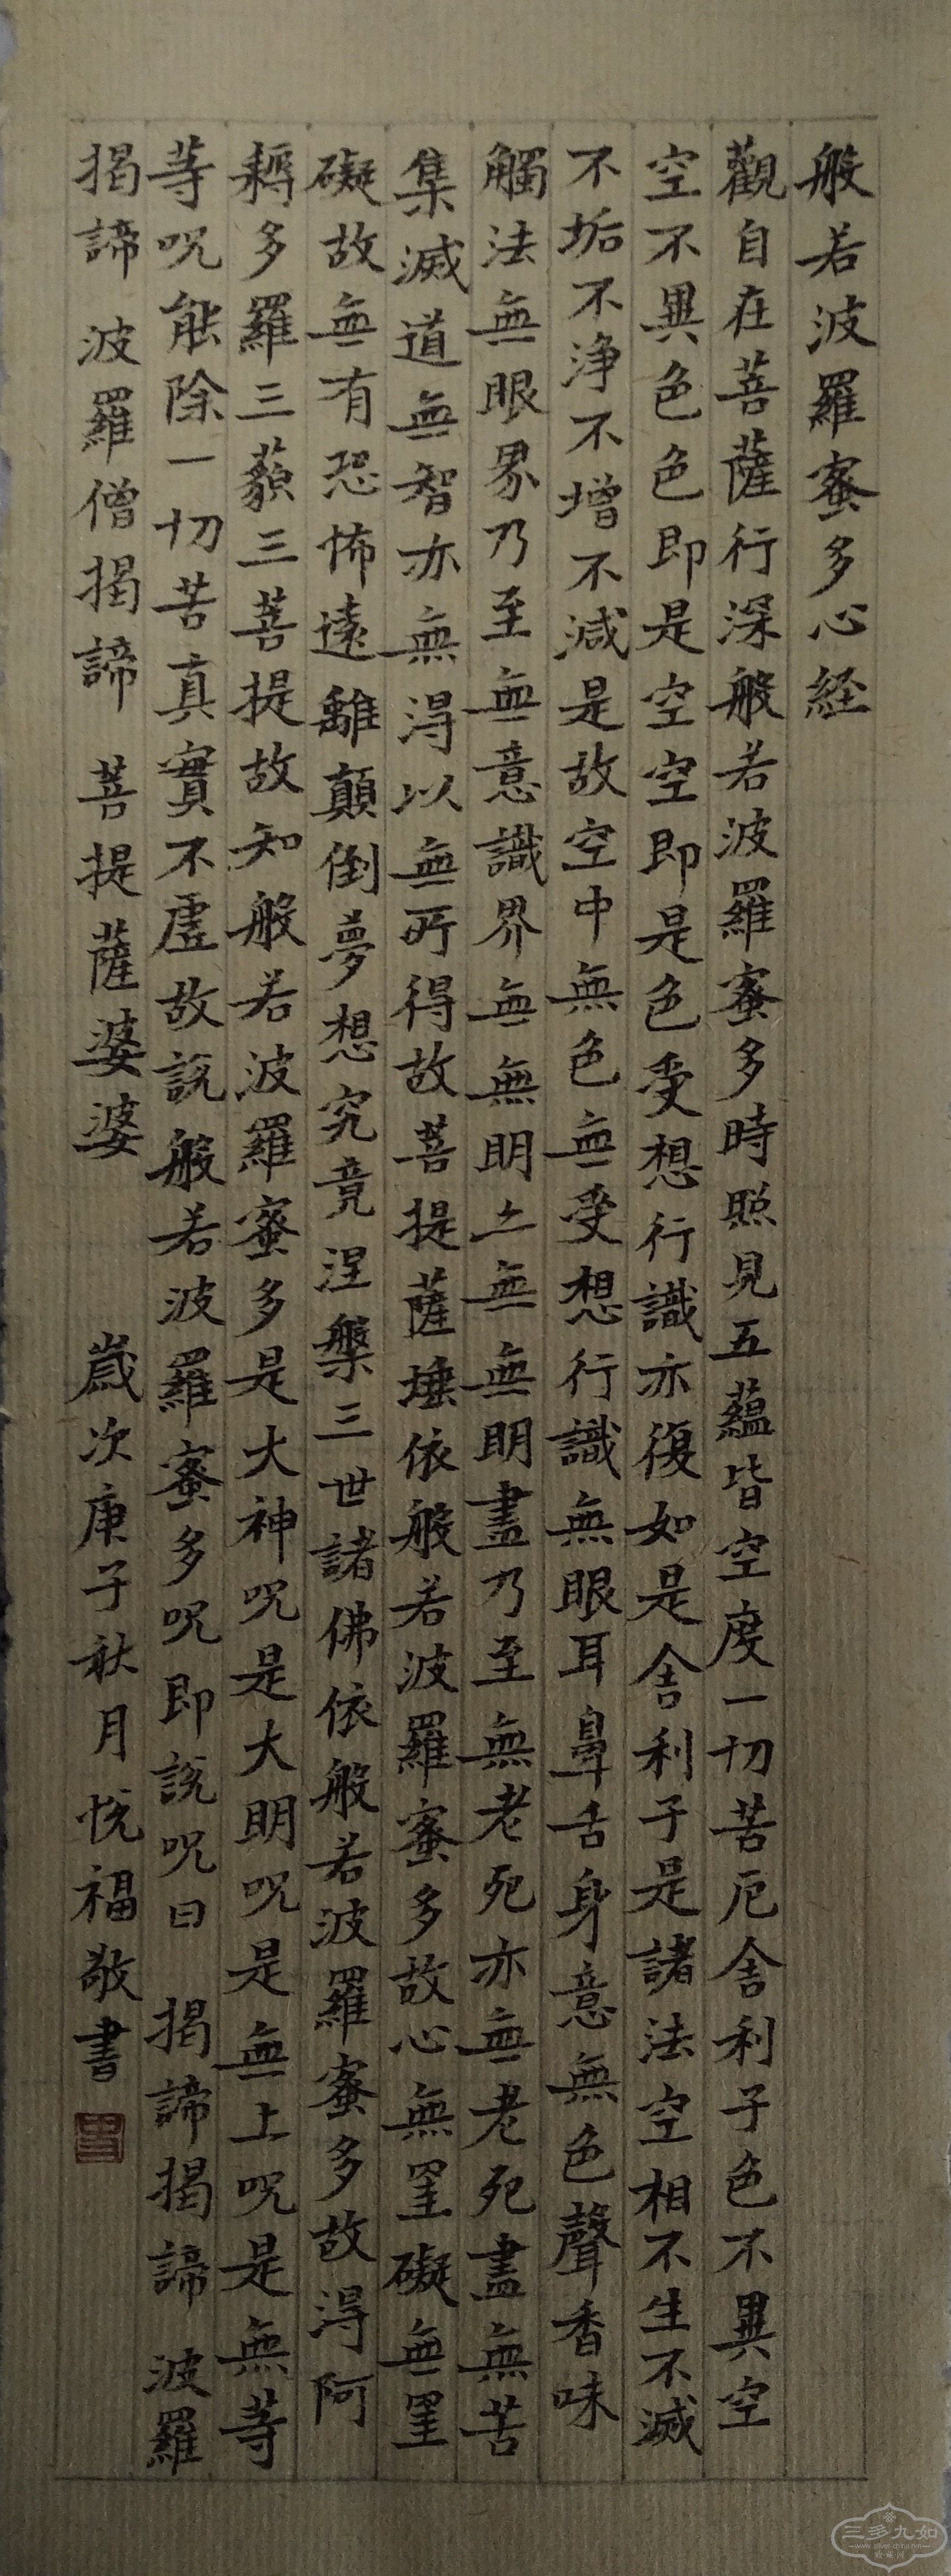 般若波羅蜜多心経
觀自在菩薩行深般若波羅蜜多時照見五蘊皆空度一切苦厄舎利子色不異空
空不異色色即是空空即是色受想行識亦復如是舎利子是諸法空相不生不滅
不垢不浄不增不減是故空中無色無受想行識無眼耳鼻舌身意無色聲香味
觸法無眼界乃至無意識界無無明亠無無明盡乃至無老死亦無老死盡無苦
集滅道無智亦無得以無所得故菩提薩埵依般若波羅蜜多故心無罣礙無罣
礙故無有恐怖遠離顛倒夢想究竟涅槃三世諸佛依般若波羅蜜多故得阿
耨多羅三藐三菩提故知般若波羅蜜多是大神呪是大明呪是無上呪是無等
等呪能除一切苦真實不虛故說般若波羅蜜多呪即說呪曰 揭諦揭諦 波羅
揭諦 波羅僧揭諦 菩提薩婆婆 歲次庚子秋月悅福敬書
三多九如